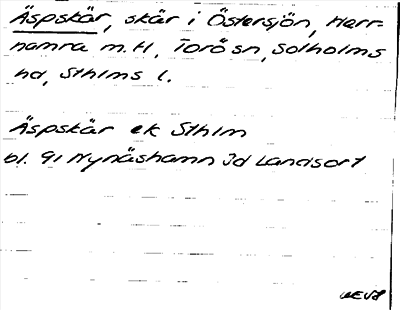 Äspskär, skär i Östersjön, Herr-
hamra m.fl. Torö sn, Sotholms
hd, Sthlms l.
Äspskär ek Sthlm
bl. 91 Nynäshamn Id Landsort